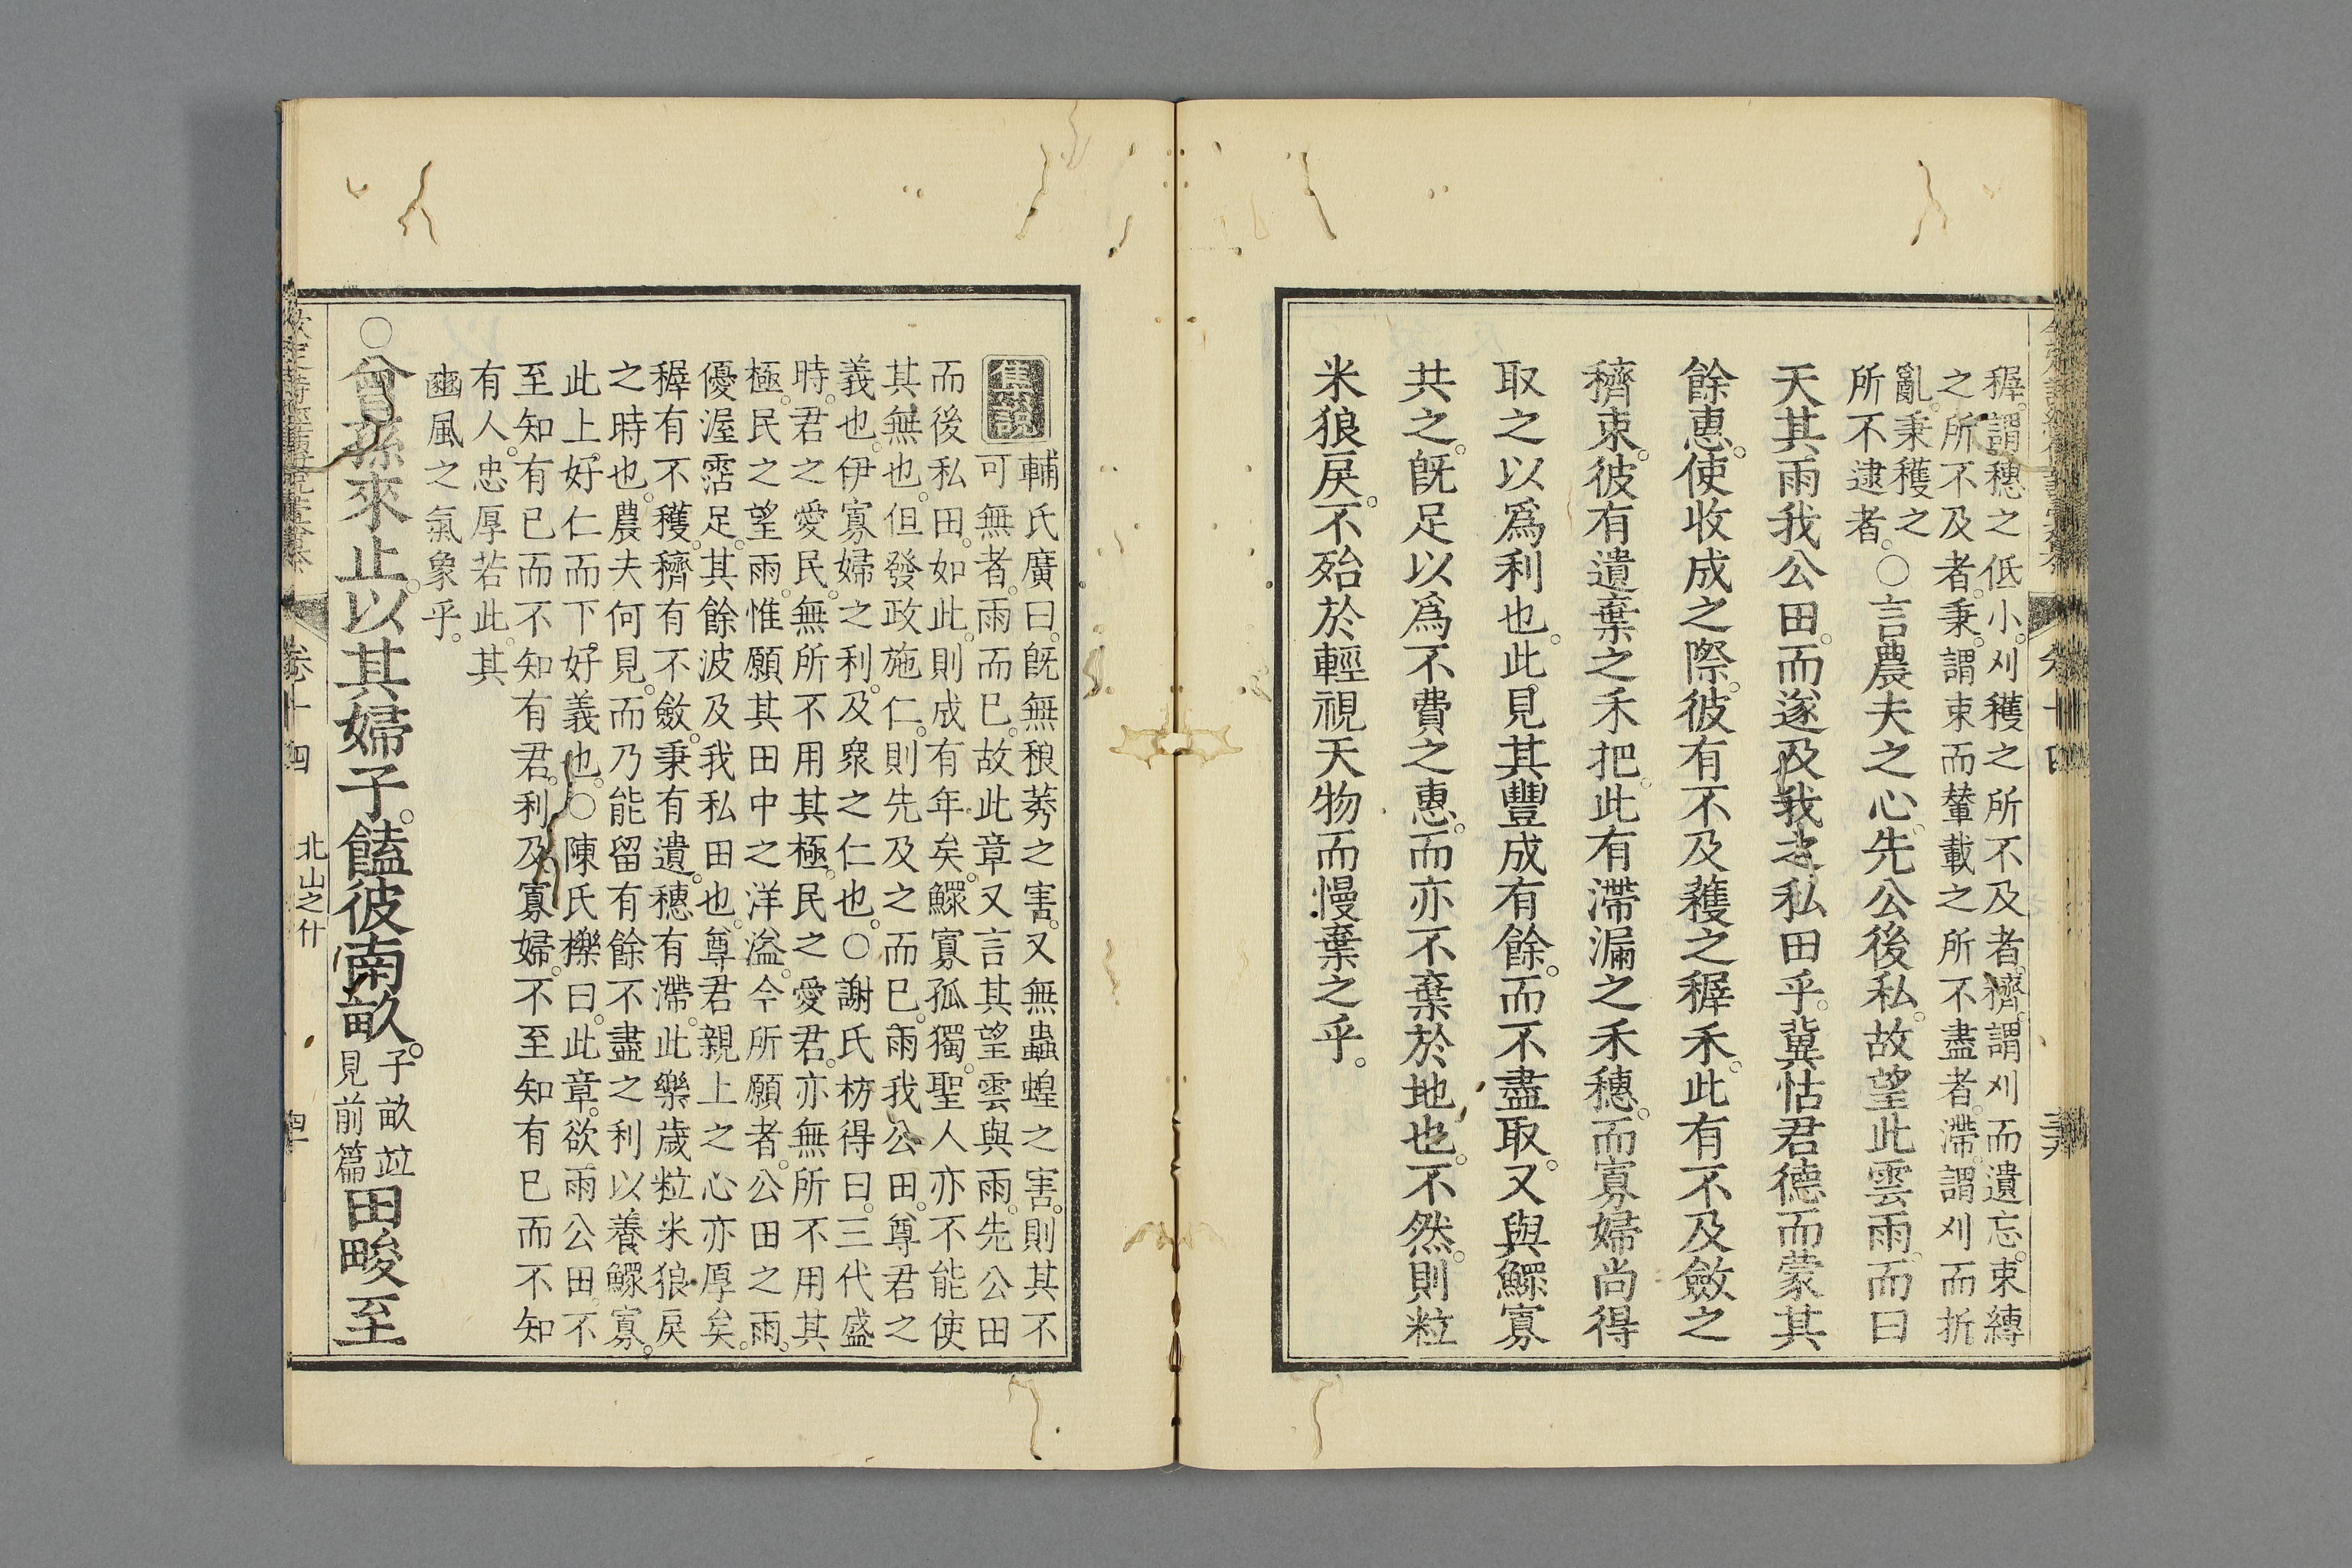 穉。謂穗之低小。刈穫之所不及者。穧。謂刈而遺忘。束縛
之所不及者。秉。謂束而輦載之所不盡者。滯。謂刈而折
亂。秉穫之
所不逮者。○言農夫之心。先公後私。故望此雲雨。而曰
天其雨我公田。而遂及我之私田乎。冀怙君德而蒙其
餘惠。使收成之際。彼有不及穫之穉禾。此有不及斂之
穧束。彼有遺棄之禾把。此有滯漏之禾穗。而寡婦尚得
取之以爲利也。此見其豐成有餘。而不盡取。又與鰥寡
共之。旣足以爲不費之惠。而亦不棄於地也。不然。則粒
米狼戾。不殆於輕視天物而慢棄之乎。
卷十四
集說
輔氏廣曰。旣無稂莠之害。又無蟲蝗之害。則其不
可無者。雨而已。故此章又言其望雲與雨。先公田
而後私田。如此。則成有年矣。鰥寡孤獨。聖人亦不能使
其無也。但發政施仁。則先及之而已。雨我公田。尊君之
義也。伊寡婦之利。及衆之仁也。○謝氏枋得曰。三代盛
時。君之愛民。無所不用其極。民之愛君。亦無所不用其
極。民之望雨。惟願其田中之洋溢。今所願者。公田之雨。
優渥霑足。其餘波及我私田也。尊君親上之心亦厚矣。
穉有不穫。穧有不斂。秉有遺。穗有滯。此樂歲粒米狼戾
之時也。農夫何見。而乃能留有餘不盡之利以養鰥寡。
此上好仁而下好義也。○陳氏櫟曰。此章。欲雨公田。不
至知有已而不知有君。利及寡婦。不至知有已而不知
有人。忠厚若此。其
豳風之氣象乎。
○曾孫來止。以其婦子。饁彼南畝。子畝竝
見前篇田畯至
卷十四
北山之什